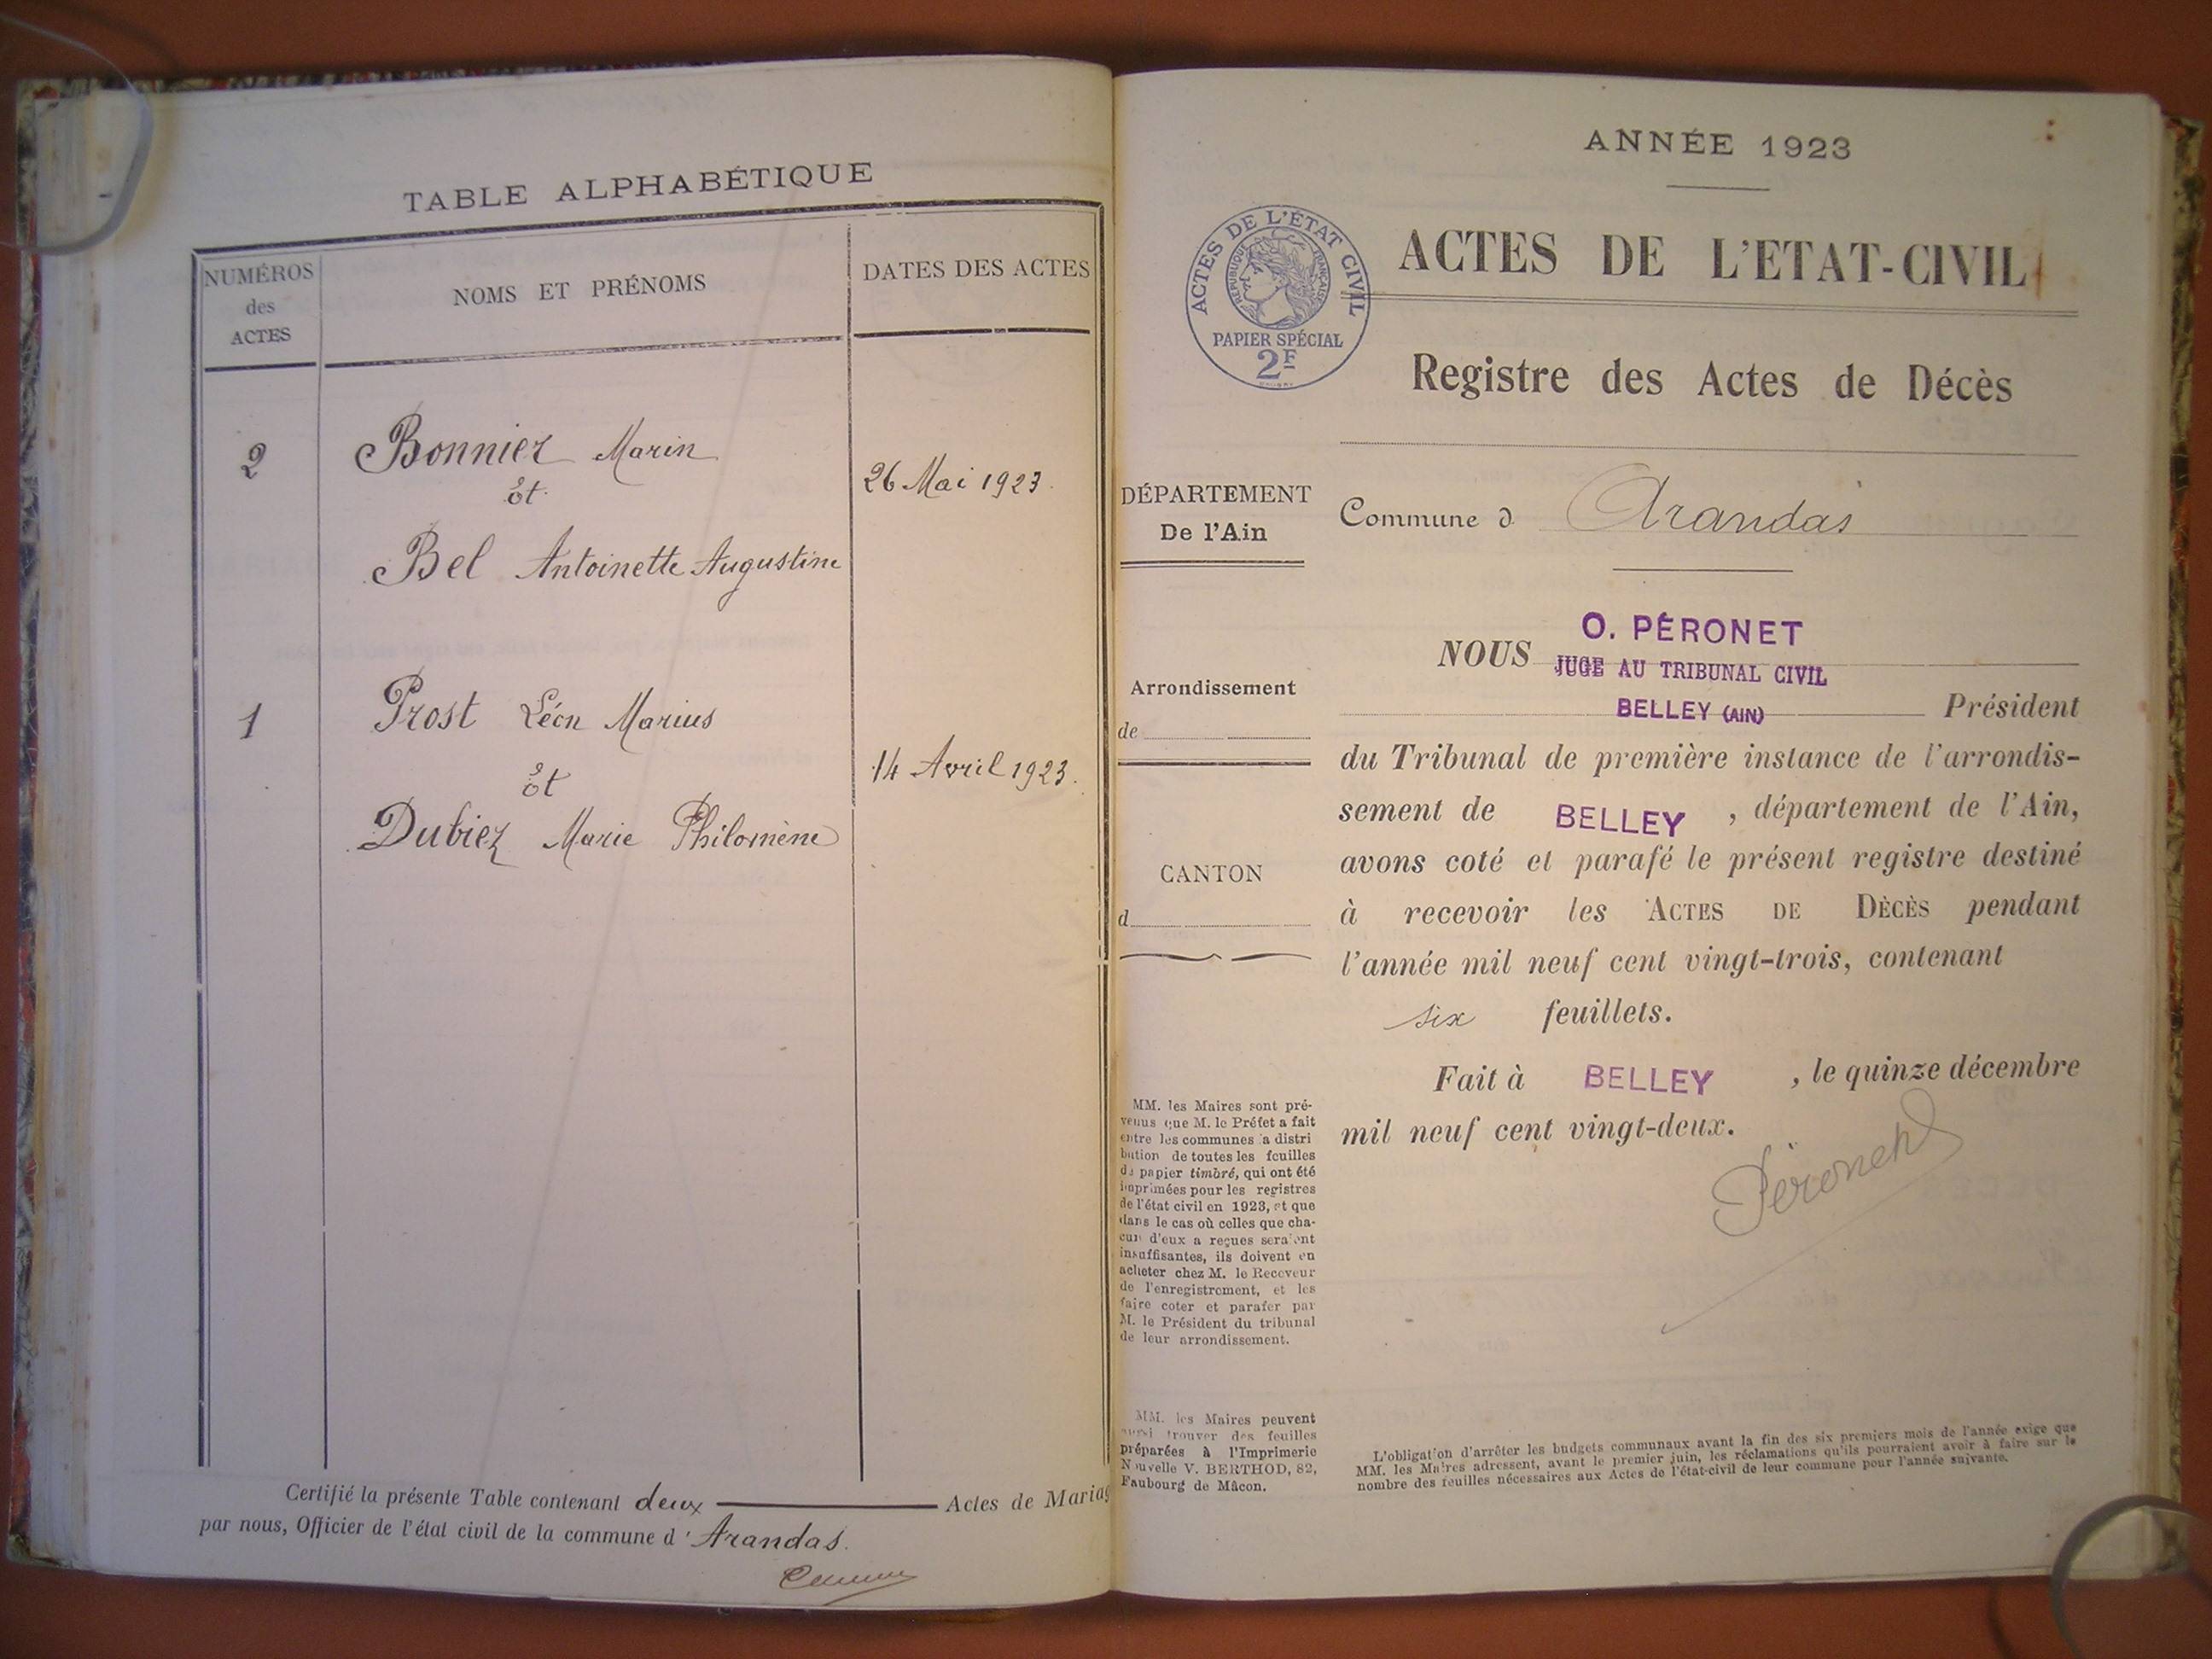 TABLE ALPHABÉTIQUE
NUMÉROS
des
ACTES
NOMS ET PRÉNOMS
DATES DES ACTES
2
Bonnier Marin
Et
26 Mai 1923.
Bel Antoinette Augustine
1
Prost Léon Marius
Et
14 Avril 1923.
Dubiez Marie Philomène
Certifié la présente Table contenant deux Actes de Mariag
par nous, Officier de l'état civil de la commune d'Arandas.
ANNÉE 1923
ACTES DE L'ÉTAT CIVIL
RÉPUBLIQUE FRANÇAISE
PAPIER SPÉCIAL
2F
ACTES DE L'ETAT-CIVIL
Registre des Actes de Décès
DÉPARTEMENT
De l'Ain
Arrondissement
de
CANTON
d
MM. les Maires sont pré-
venus que M. le Préfet a fait
entre les communes a distri
bution de toutes les feuilles
de papier timbré, qui ont été
imprimées pour les registres
de l'état civil en 1923, et que
dans le cas où celles que cha-
cun d'eux a reçues seraient
insuffisantes, ils doivent en
acheter chez M. le Receveur
de l'enregistrement, et les
faire coter et parafer par
M. le Président du tribunal
de leur arrondissement.
MM. les Maires peuvent
aussi trouver des feuilles
préparées à l'Imprimerie
Nouvelle V. BERTHOD, 82,
Faubourg de Mâcon.
Commune d Arandas
NOUS O. PÉRONET
JUGE AU TRIBUNAL CIVIL
BELLEY (AIN) Président
du Tribunal de première instance de l'arrondis-
sement de BELLEY, département de l'Ain,
avons coté et parafé le présent registre destiné
à recevoir les ACTES DE DÉCÈS pendant
l'année mil neuf cent vingt-trois, contenant
six feuillets.
Fait à BELLEY, le quinze décembre
mil neuf cent vingt-deux.
Péronet
L'obligation d'arrêter les budgets communaux avant la fin des six premiers mois de l'année exige que
MM. les Maires adressent, avant le premier juin, les réclamations qu'ils pourraient avoir à faire sur le
nombre des feuilles nécessaires aux Actes de l'état-civil de leur commune pour l'année suivante.